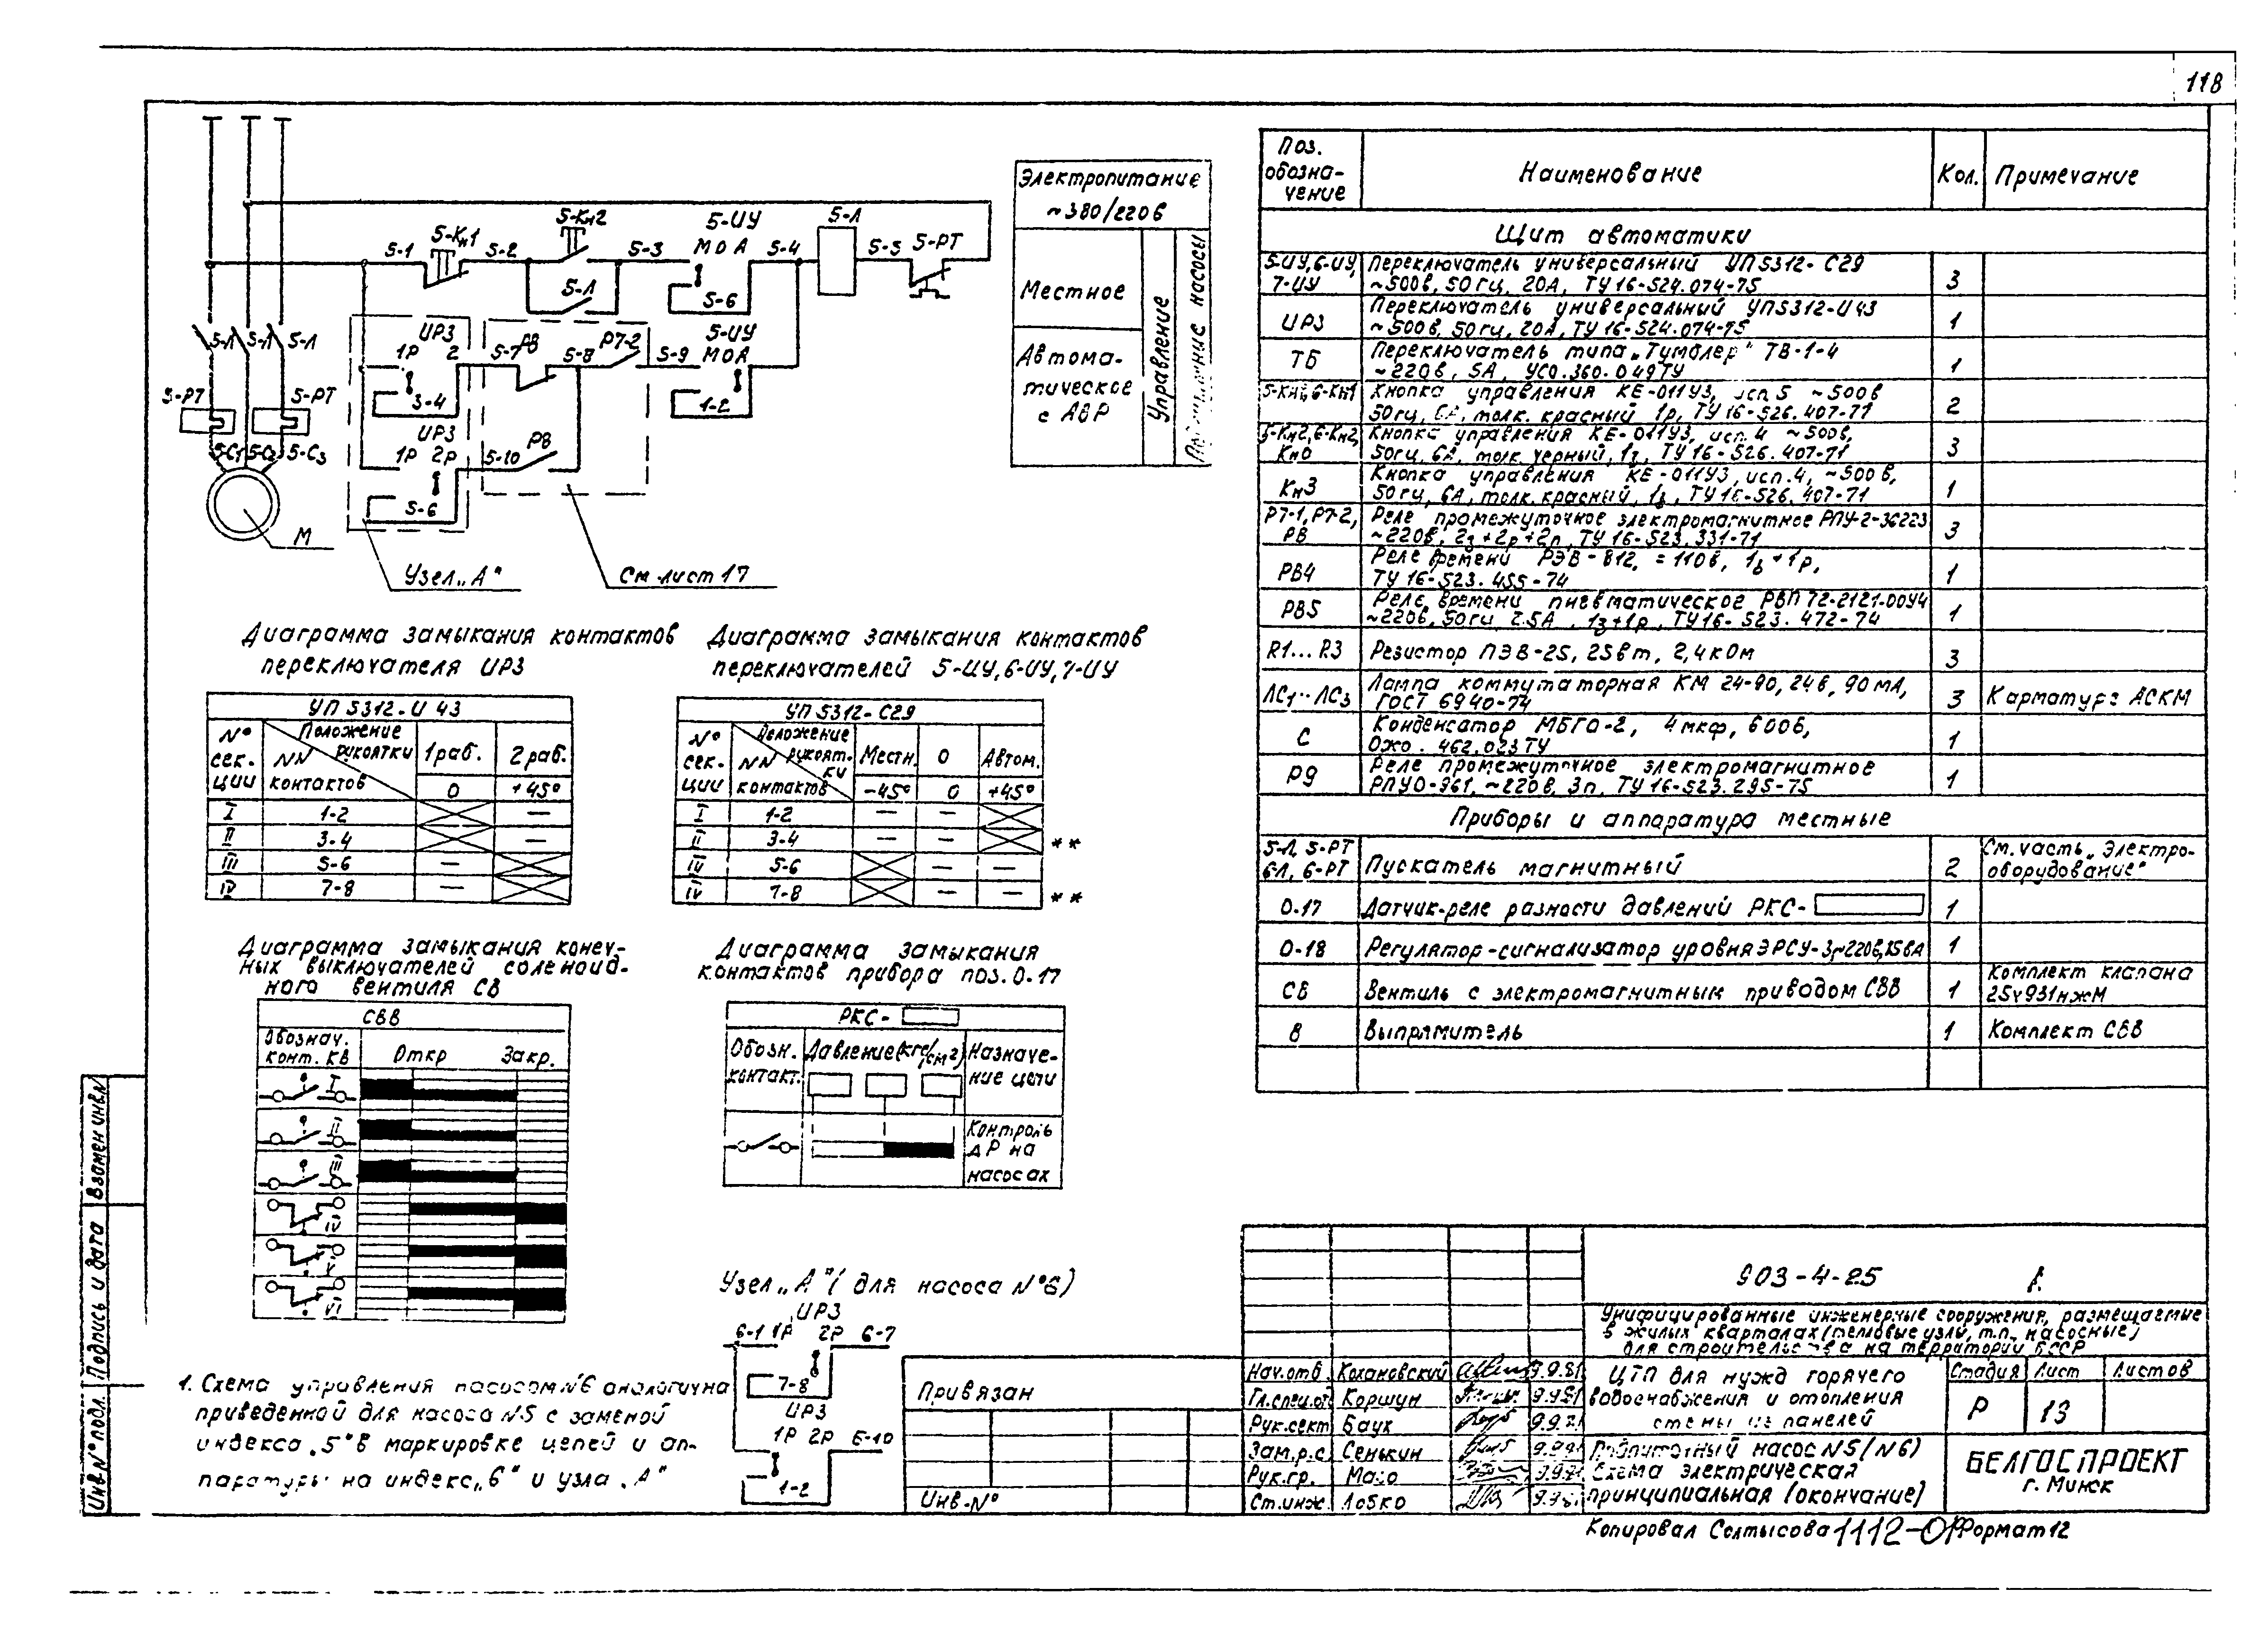 118
5-1
5-Кн1
5-2
5-Кн2
5-Л
5-3
5-ИУ
М О А
5-6
5-4
5-Л
5-5
5-РТ
5-Л
5-Л
5-Л
5-РТ
5-РТ
5-С1
5-С2
5-С3
М
ИР3
1Р 2
3-4
ИР3
1Р 2Р
5-6
5-7
РВ
5-8
Р7-2
5-9
5-ИУ
М О А
1-2
5-10
РВ
Узел „А"
См лист 17
Электропитание
~380/220в
Местное
Автома-
тическое
с АВР
Управление
насосы
Поз.
обозна-
чение
Наименование
Кол.
Примечание
Щит автоматики
5-ИУ, 6-ИУ,
7-ИУ
Переключатель универсальный УП5312-С29
~500в, 50гц, 20А, ТУ 16-524.074-75
3
ИР3
Переключатель универсальный УП5312-И43
~500в, 50гц, 20А, ТУ 16-524.074-75
1
ТБ
Переключатель типа „Тумблер" ТВ-1-4
~220в, 5А, УСО.360.049ТУ
1
5-Кн1, 6-Кн1
Кнопка управления КЕ-011У3, исп 5 ~500в
50гц, 6А, толк. красный 1р, ТУ 16-526.407-71
2
5-Кн2, 6-Кн2,
Кн0
Кнопка управления КЕ-011У3, исп. 4 ~500в,
50гц, 6А, толк черный, 1з, ТУ 16-526.407-71
3
Кн3
Кнопка управления КЕ-011У3, исп. 4, ~500в,
50гц, 6А, толк. красный, 1з, ТУ 16-526.407-71
1
Р7-1, Р7-2,
РВ
Реле промежуточное электромагнитное РПУ-2-36223
~220в, 2з+2р+2п, ТУ 16-523.331-71
3
РВ4
Реле времени РЭВ-812, =110в, 1з+1р,
ТУ 16-523.455-74
1
РВ5
Реле времени пневматическое РВП72-2121.00У4
~220в, 50гц 2.5А, 1з+1р, ТУ 16-523.472-74
1
R1...R3
Резистор ПЭВ-25, 25вт, 2,4кОм
3
ЛС1...ЛС3
Лампа коммутаторная КМ 24-90, 24в, 90мА,
ГОСТ 6940-74
3
Карматура АСКМ
С
Конденсатор МБГО-2, 4мкф, 600в,
Ожо.462.023ТУ
1
Р9
Реле промежуточное электромагнитное
РПУ0-961, ~220в, 3п, ТУ 16-523.295-75
1
Приборы и аппаратура местные
5-Л, 5-РТ
6-Л, 6-РТ
Пускатель магнитный
2
См. часть „Электро-
оборудование"
0-17
Датчик-реле разности давлений РКС-
1
0-18
Регулятор-сигнализатор уровня ЭРСУ-3,~220в,15вА
1
СВ
Вентиль с электромагнитным приводом СВВ
1
Комплект клапана
25ч931нжМ
В
Выпрямитель
1
Комплект СВВ
Диаграмма замыкания контактов
переключателя ИР3
УП 5312-И 43
№
сек-
ции
Положение
рукоятки
NN
контактов
1 раб.
2 раб.
0
+45°
I
1-2
—
II
3-4
—
III
5-6
—
IV
7-8
—
Диаграмма замыкания контактов
переключателей 5-ИУ, 6-ИУ, 7-ИУ
УП 5312-С29
№
сек-
ции
Положение
рукоят-
ки
NN
контактов
Местн.
0
Автом.
-45°
0
+45°
I
1-2
— —
II
3-4
— —
**
IV
5-6
— —
IV
7-8
— —
**
Диаграмма замыкания конеч-
ных выключателей соленоид-
ного вентиля СВ
СВВ
Обознач.
конт. КВ
Откр
Закр.
I
II
III
IV
V
VI
Диаграмма замыкания
контактов прибора поз. 0-17
РКС-
Обозн.
контакт.
Давление (кгс/см²)
Назначе-
ние цепи
Контроль
ΔР на
насосах
Узел „А" (для насоса №6)
ИР3
6-1 1Р 2Р 6-7
7-8
ИР3
1Р 2Р 6-10
1-2
1. Схема управления насосом №6 аналогична
приведенной для насоса №5 с заменой
индекса „5" в маркировке цепей и ап-
паратуры на индекс „6" и узла „А"
Привязан
Инв.№
903-4-25
Унифицированные инженерные сооружения, размещаемые
в жилых кварталах (тепловые узлы, т.п., насосные)
для строительства на территории БССР
Нач.отд. Кохановский 9.9.81
Гл.спец.от Коршун 9.9.81
Рук.сект Баух 9.9.81
Зам.р.с. Сенькин 9.9.81
Рук.гр. Мазо 9.9.81
Ст.инж. Лобко 9.9.81
ЦТП для нужд горячего
водоснабжения и отопления
стены из панелей
Стадия
Лист
Листов
Р
13
Подпиточный насос №5 (№6)
Схема электрическая
принципиальная (окончание)
БЕЛГОСПРОЕКТ
г. Минск
Копировал Солтысова 1112-01 Формат 12
Инв.№ подл.
Подпись и дата
Взамен инв.N